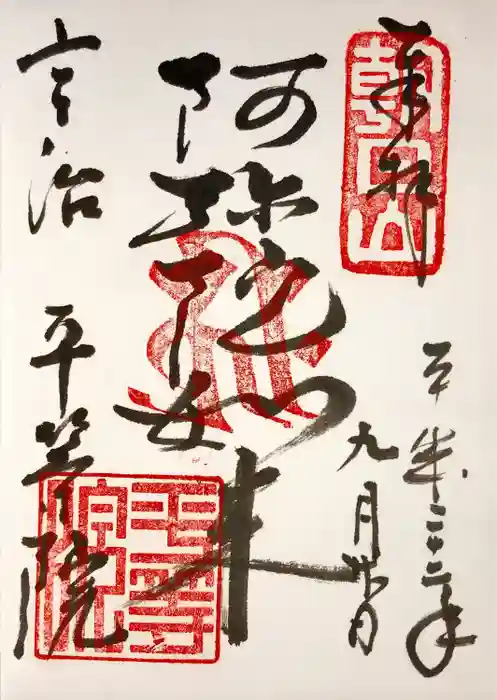 奉拝
朝日山
平成二十二年
九月廿日
阿弥陀如来
宇治 平等院
平等院